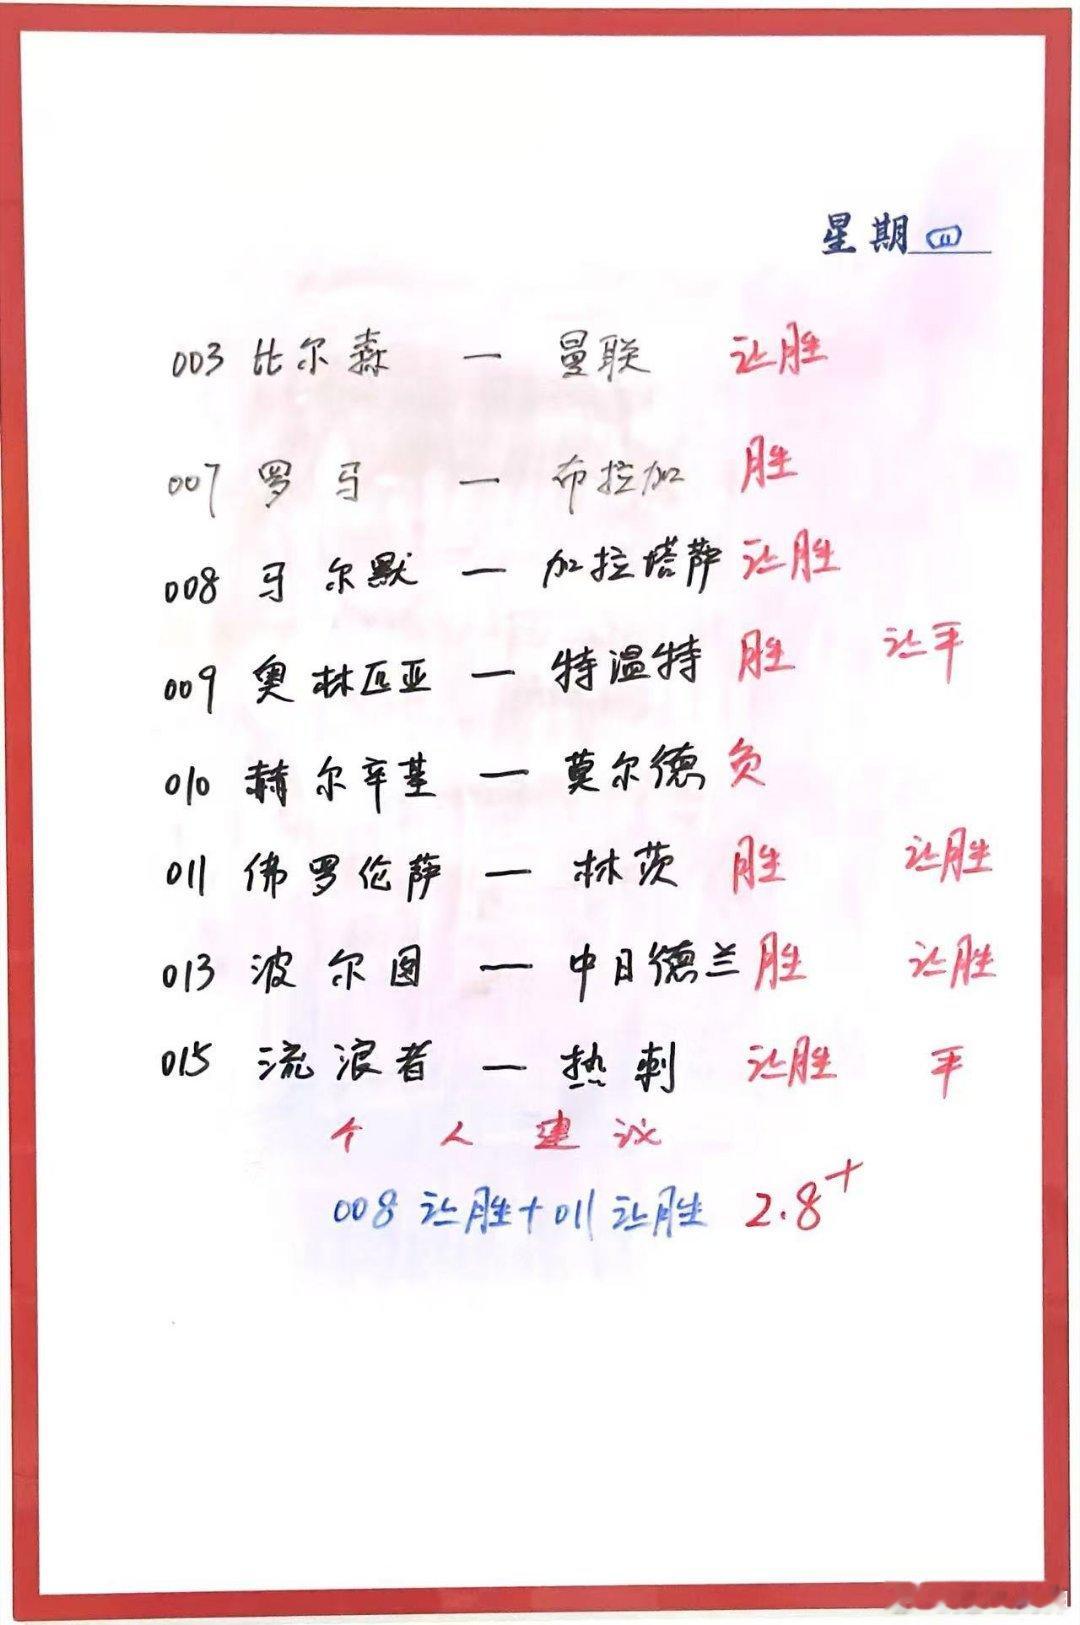 星期四
003 比尔森 — 曼联 让胜
007 罗马 — 布拉加 胜
008 马尔默 — 加拉塔萨 让胜
009 奥林匹亚 — 特温特 胜 让平
010 赫尔辛基 — 莫尔德 负
011 佛罗伦萨 — 林茨 胜 让胜
013 波尔图 — 中日德兰 胜 让胜
015 流浪者 — 热刺 让胜 平
个人建议
008 让胜+011 让胜 2.8+